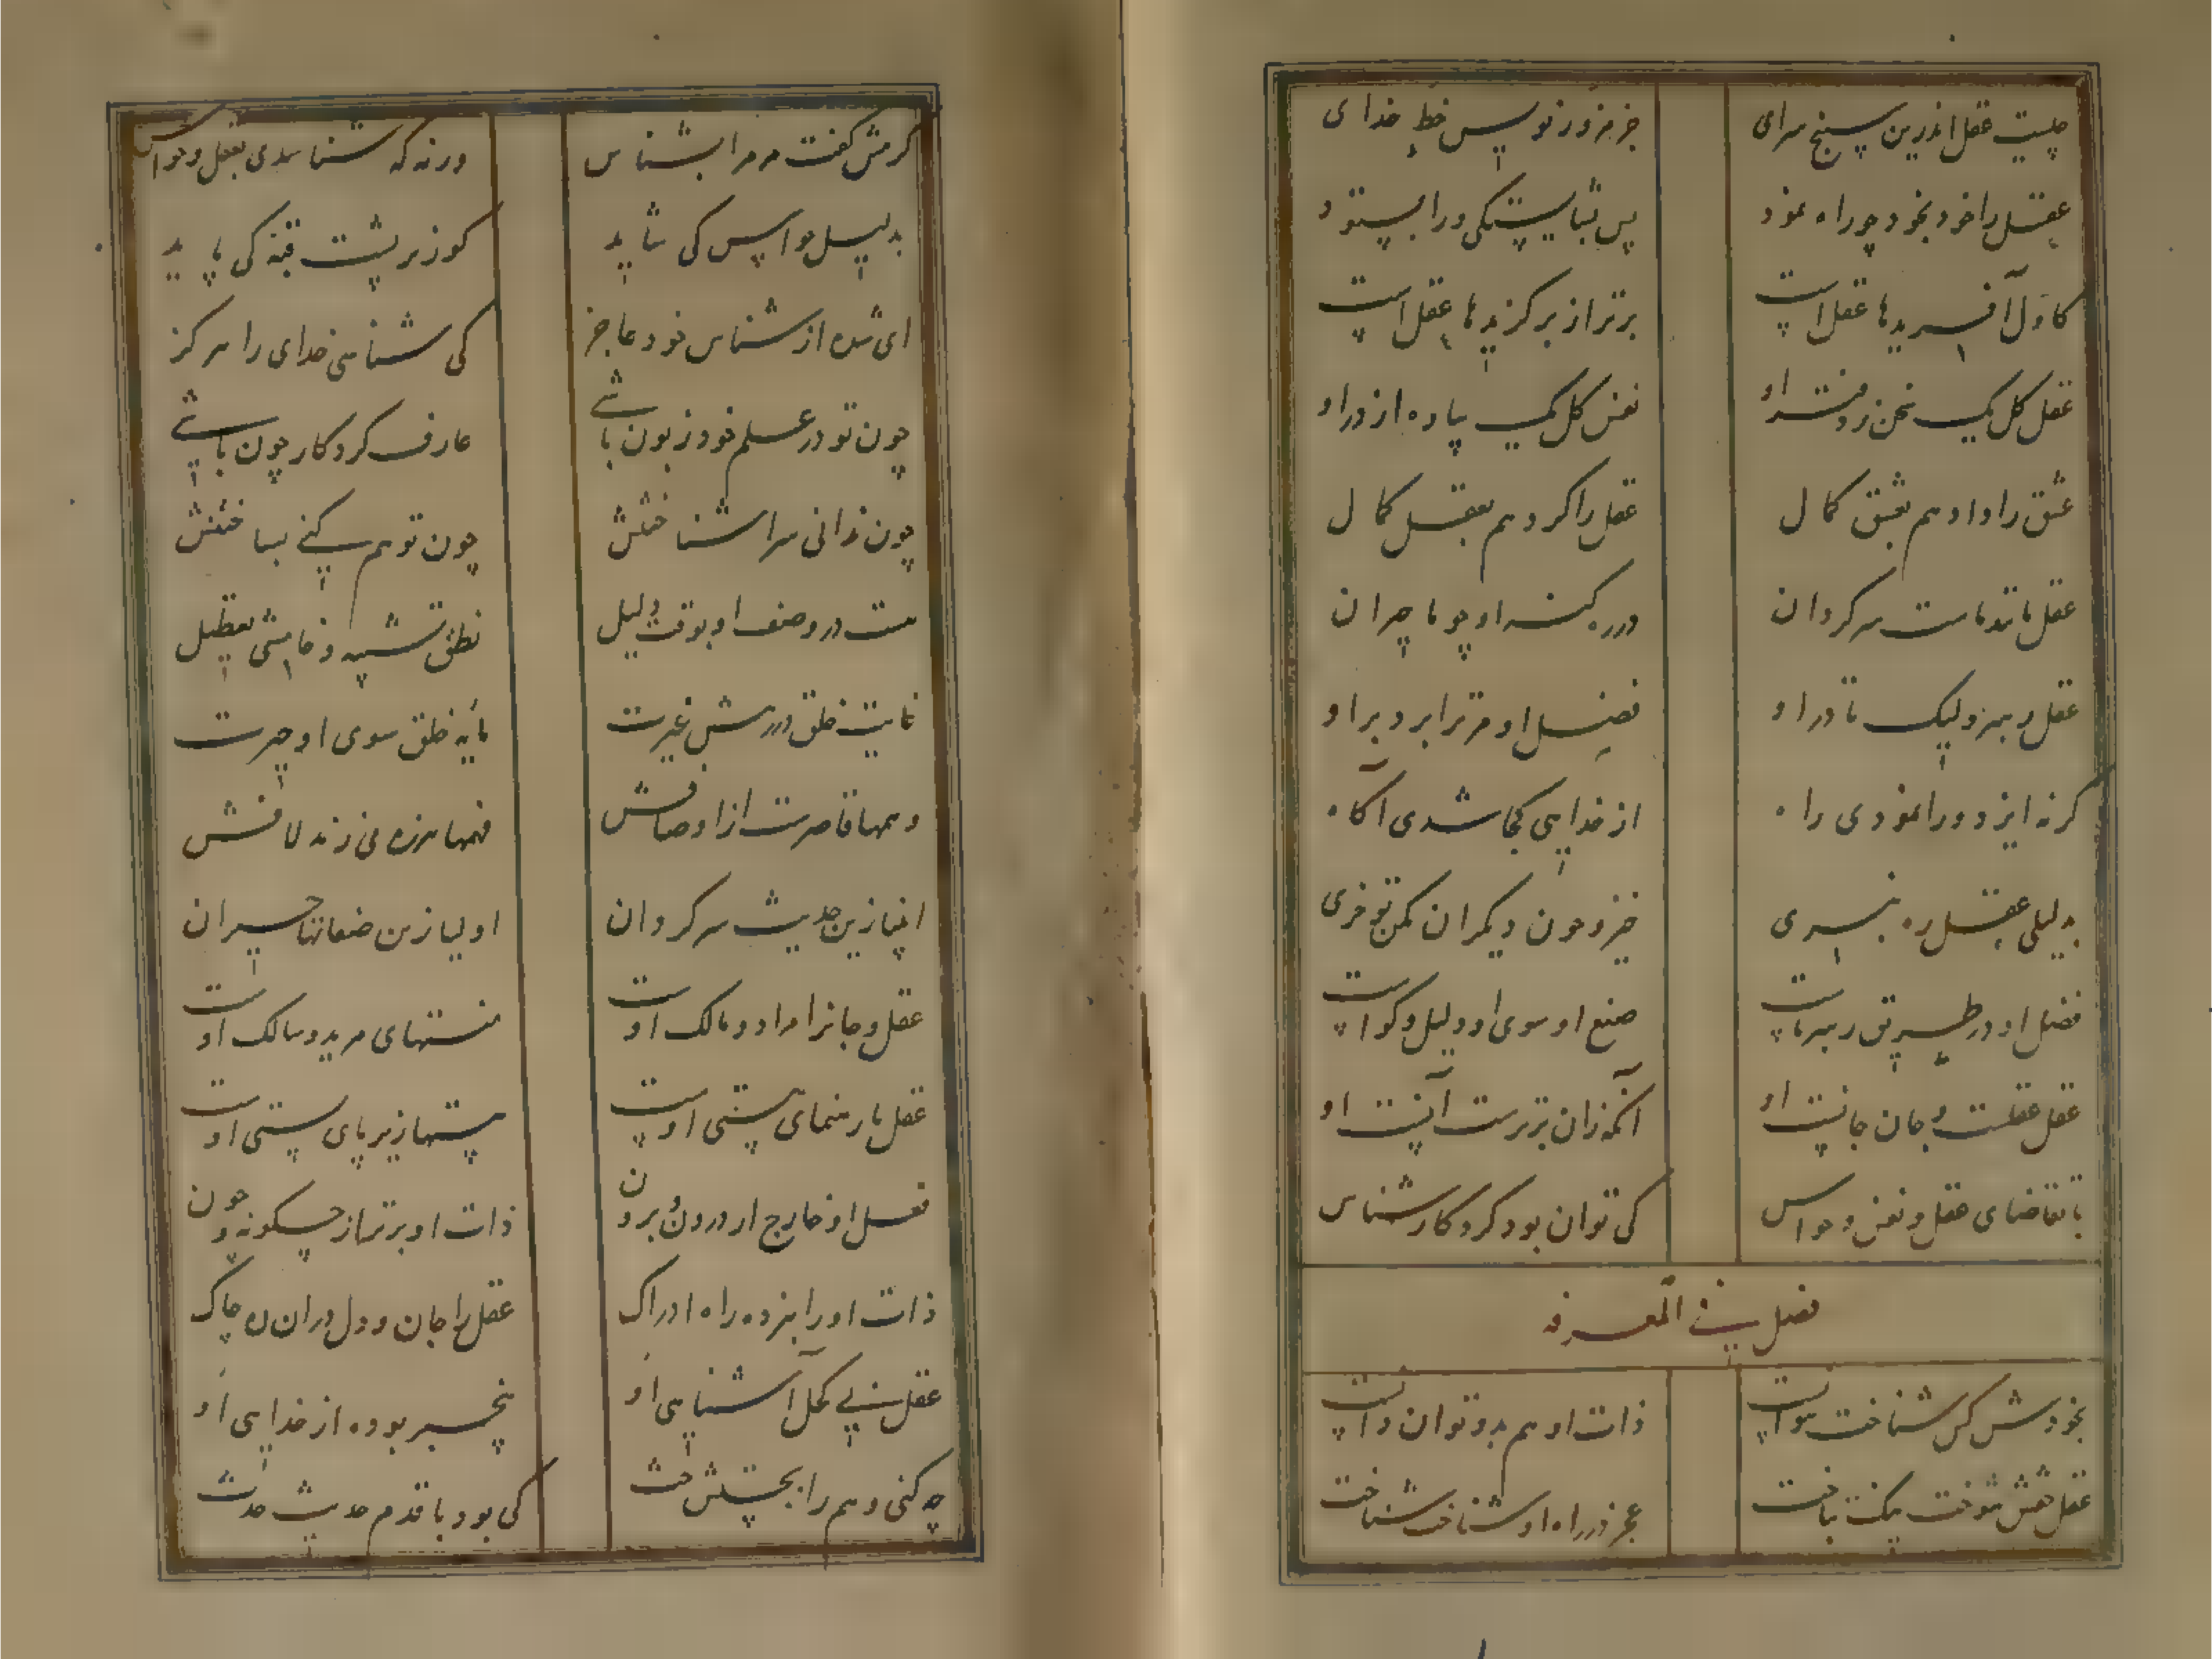 چیست عقل اندرین سپنج سرای جز مزور نویس خط خدای
عقل را خود بخود چو راه نمود پس بشایستگی ورا بستود
کاول آفریدها عقل است برتر از برگزیدها عقل است
عقل کل یک سخن ز دفتر او نفس کل یک پیاده از در او
عشق را داد هم بعشق کمال عقل را کرد هم بعقل عقال
عقل مانند ماست سرکردان در ره کنه او چو ما حیران
عقل رهبر ولیک تا در او فضل او مر ترا برد بر او
کر نه ایزد ورا نمودی راه از خدایی کجا شدی آکاه
بدلیلی عقل ره نبری خیره چون دیکران مکن تو خری
فضل او در طریق رهبر ماست صنع او سوی او دلیل و کواست
عقل عقلست و جان جانست او آنکه زان برترست آنست او
با تقاضای عقل و نفس و حواس کی توان بود کردکار شناس
فصل فی المعرفه
بخودش کس شناخت نتوانست ذات او هم بدو توان دانست
عقل حقش بتوخت نیک بتاخت عجز در راه او شناخت شناخت
کرمش کفت مر مرا بشناس ورنه که شناسدی بعقل و حواس
بدلیل حواس کی شاید کوز بر پشت قبه کی پاید
ای شده از شناس خود عاجز کی شناسی خدای را هرکز
چون تو در علم خود زبون باشی عارف کردکار چون باشی
چون ندانی سرا شناختنش چون توهم کنی بساختنش
هست در وصف او بوقت دلیل نطق تشبیه و خامشی تعطیل
غایت خلق در رهش غیرت مایه خلق سوی او حیرت
وهمها قاصرست از اوصافش فهمها هرزه می زند لافش
انبیا زین حدیث سرکردان اولیا زین صفاتها حیران
عقل و جانرا مراد و مالک اوست منتهای مرید و سالک اوست
عقل ما رهنمای هستی اوست هستها زیر پای هستی اوست
فعل او خارج از درون و برون ذات او برتر از چکونه و چون
ذات او را نبرده راه ادراک عقل را جان و دل در ان ره چاک
عقل بی کحل آشنایی او بیخبر بوده از خدایی او
چه کنی وهم را بحثش حث کی بود با قدم حدیث حدث